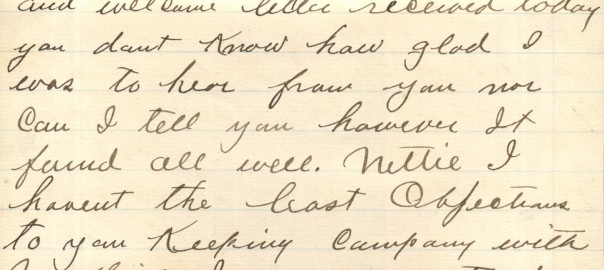 and welcome letter received today
you dont Know how glad I
was to hear from you nor
Can I tell you however It
found all well. Nettie I
havent the least Objections
to you Keeping Company with